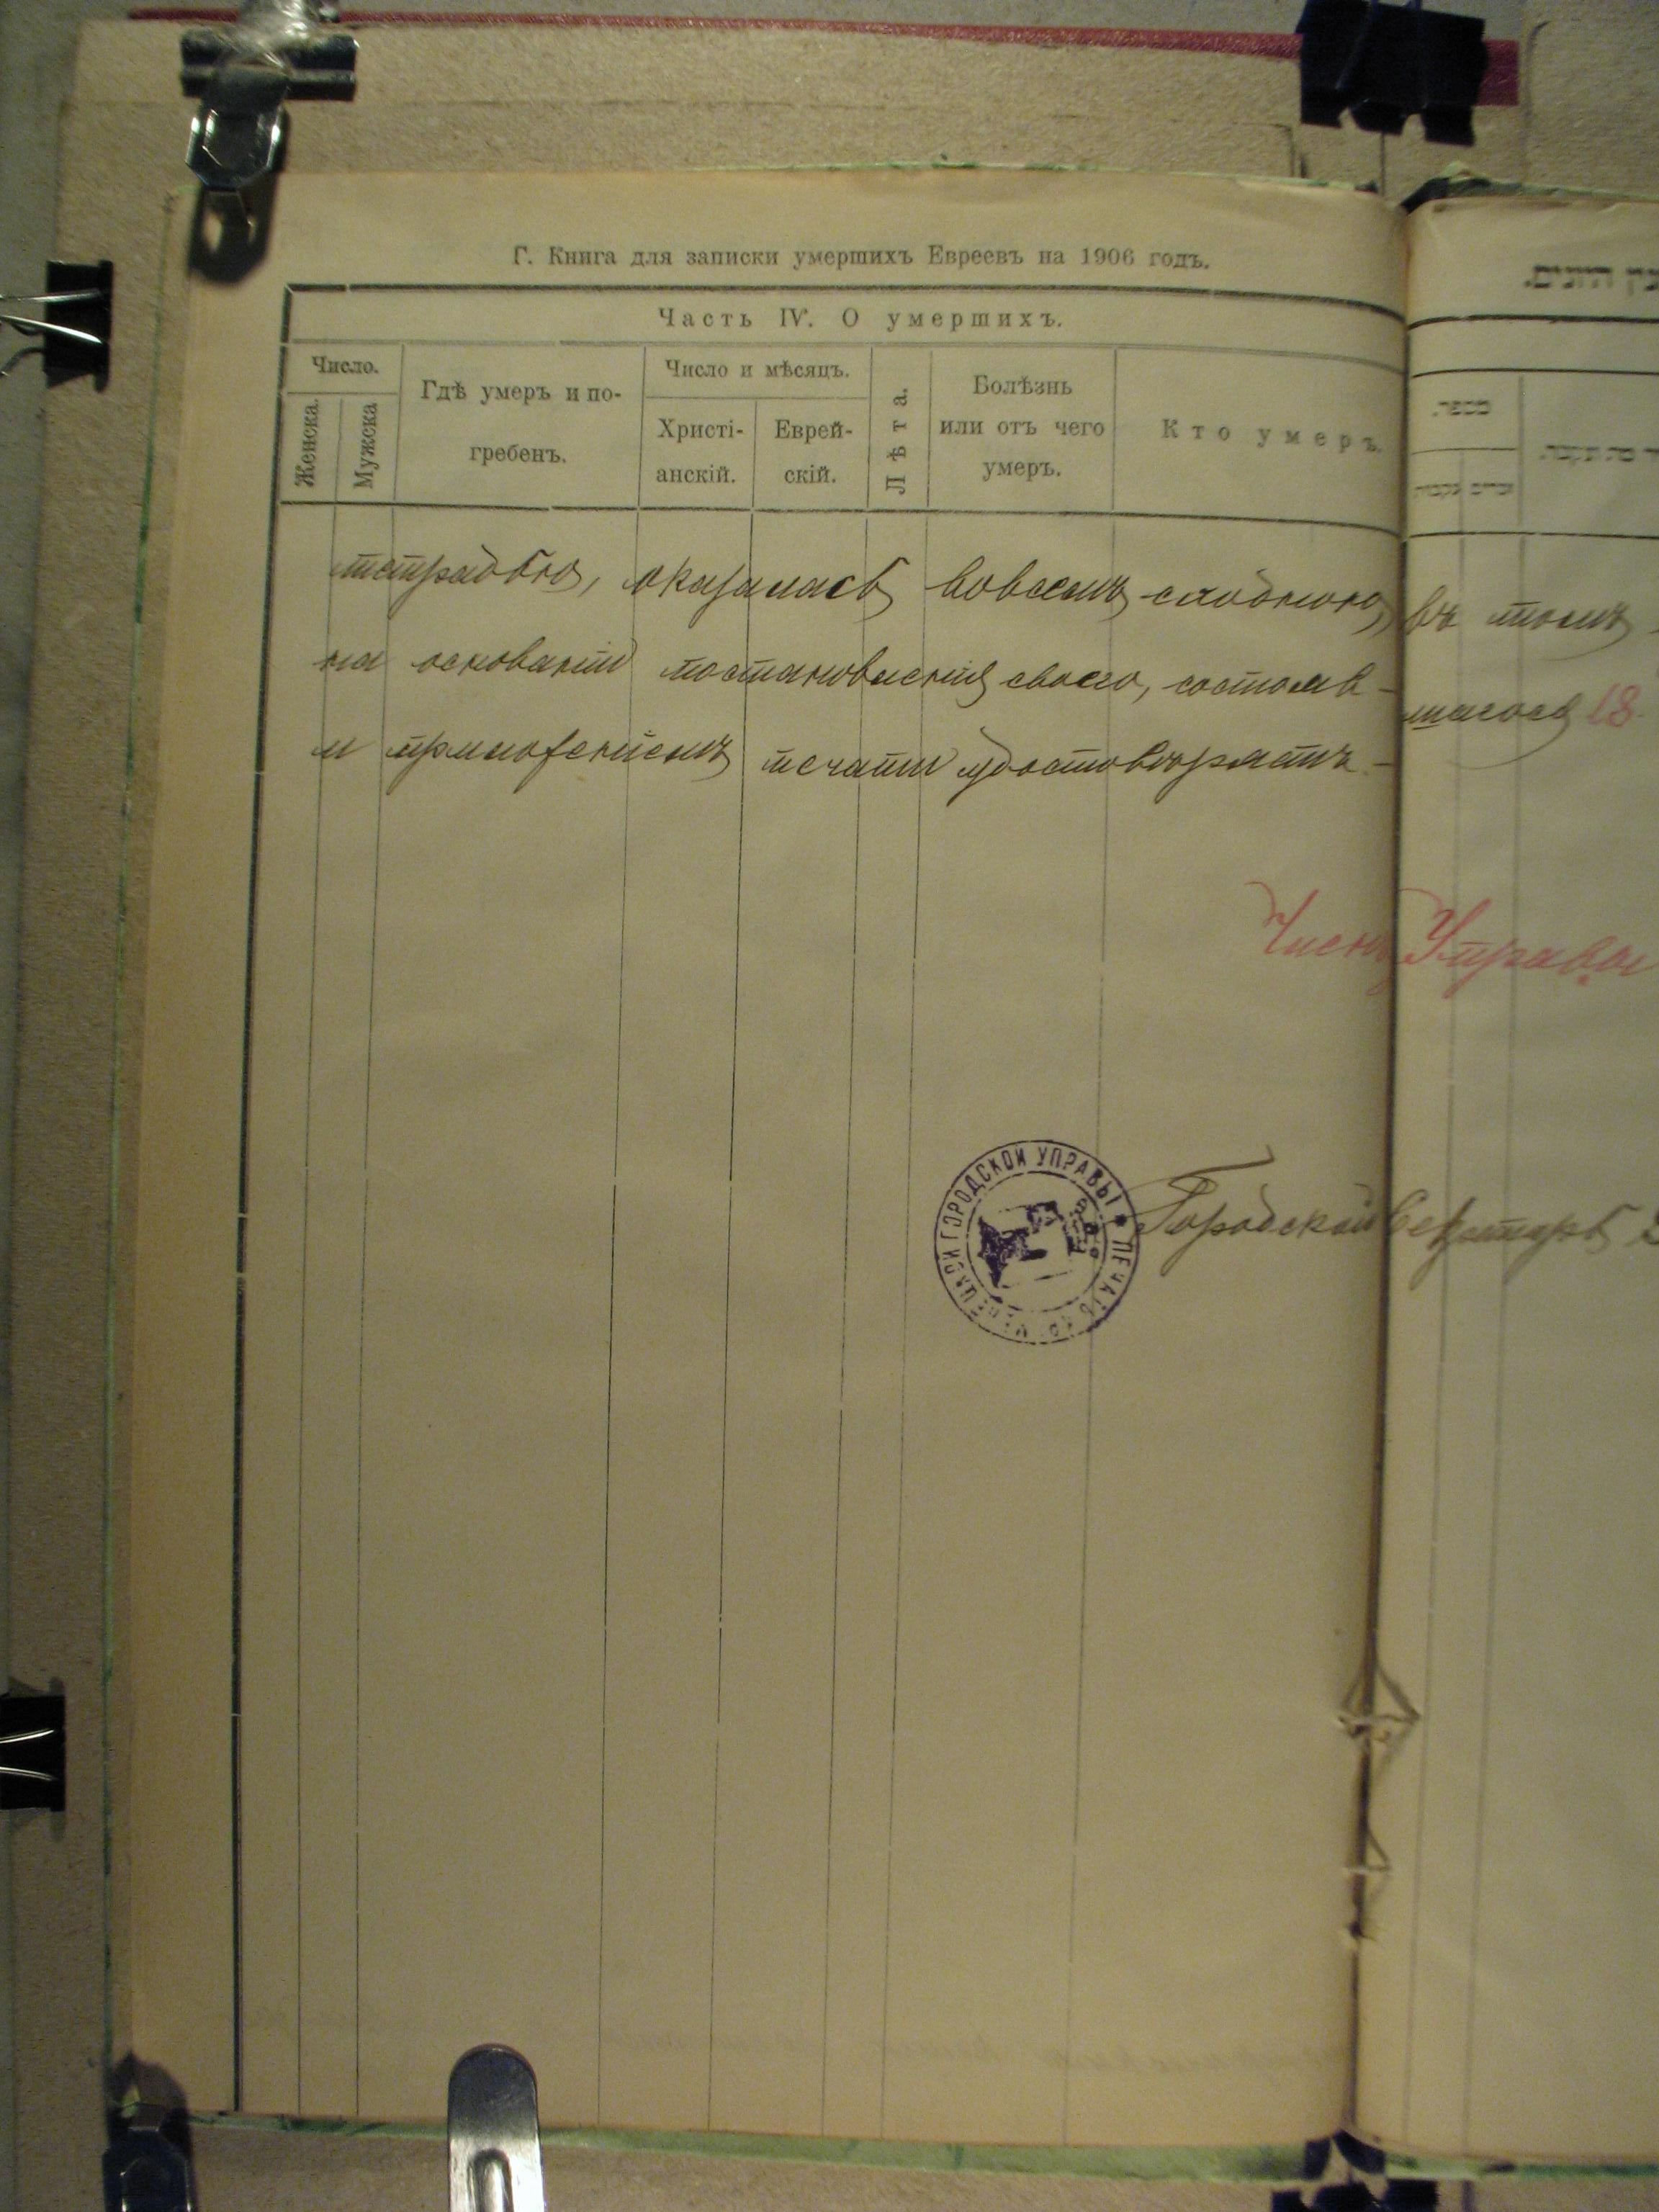 Г. Книга для записки умершихъ Евреевъ на 1906 годъ.
Часть IV. О умершихъ.
Число.
Женска.
Мужска
Гдѣ умеръ и по-
гребенъ.
Число и мѣсяцъ.
Христі-
анскій.
Еврей-
скій.
Лѣта.
Болѣзнь
или отъ чего
умеръ.
Кто умеръ.
מספר.
тетрадью, оказалась во всемъ сходною, въ томъ
на основаніи постановленія своего, состояв- шагося 18
и приложеніемъ печати удостовѣряетъ.
Членъ Управы
ГОРОДСКОЙ УПРАВЫ * ПЕЧАТЬ
Городской Секретарь